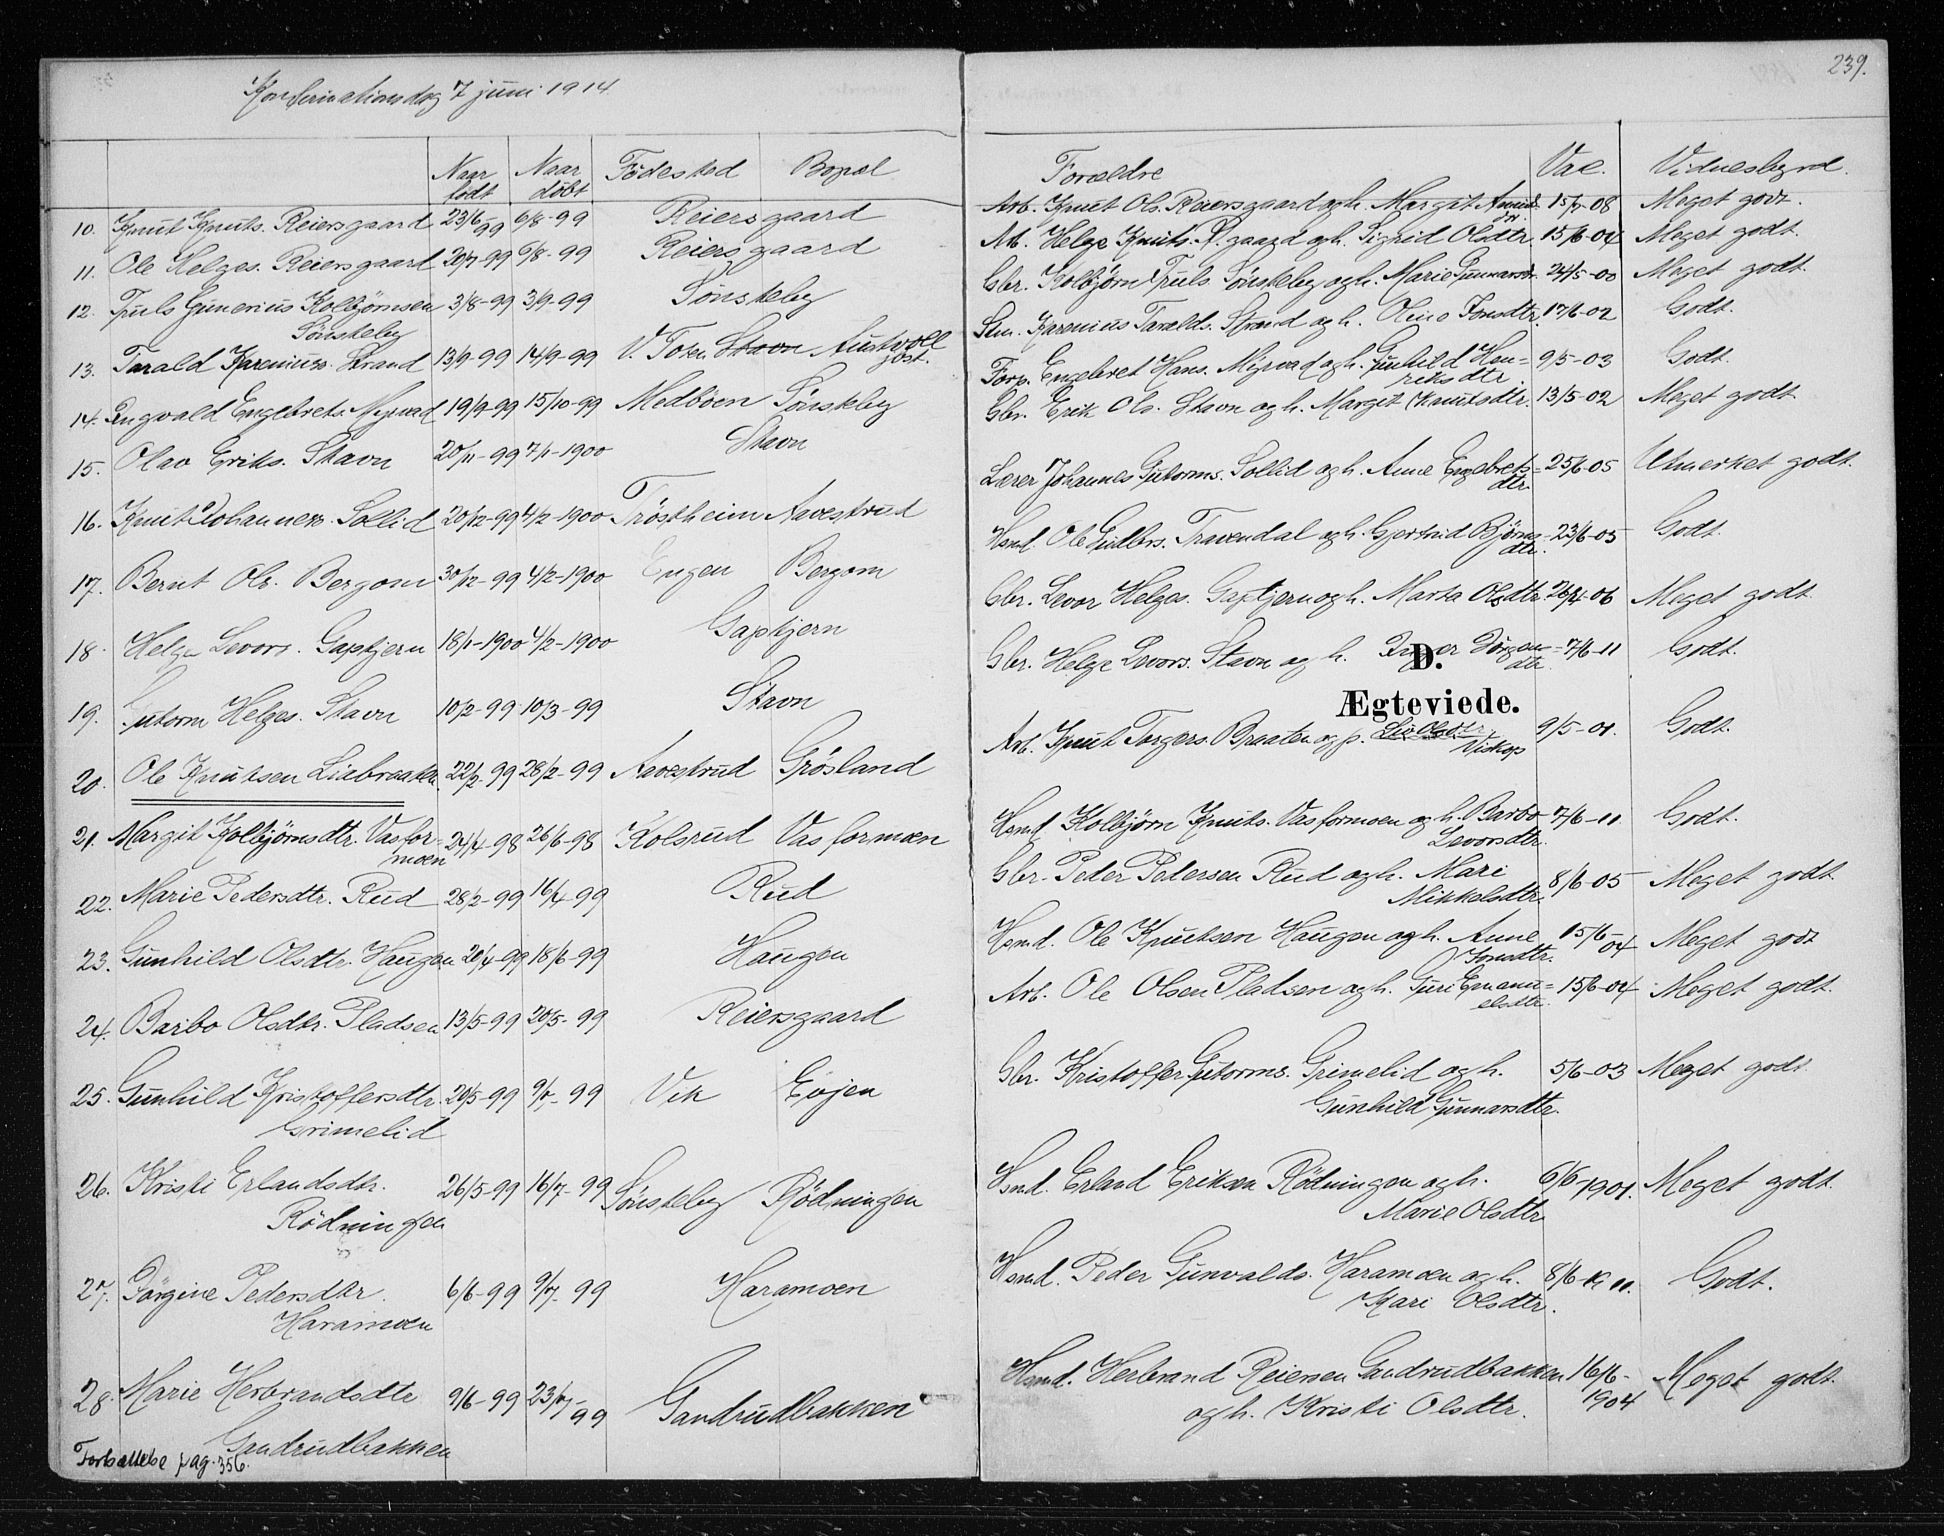 Konfirmationsdag 7 juni 1914
239.
Naar født Naar döbt Födested Bopæl Forældre Vac. Vidnesbyrd.
10. Knut Knuts. Reiersgaard 23/6-99 6/8-99 Reiersgaard Arb. Knut Ols. Reiersgaard og h. Margit Amunds-dtr. 15/5-08 Meget godt.
11. Ole Helges. Reiersgaard 20/7-99 6/8-99 Reiersgaard Arb. Helge Knuts. R.gaard og h. Sigrid Olsdtr. 15/6-04 Meget godt.
12. Truls Gunerius Kolbjörnsen Sönsteby 3/8-99 3/9-99 Sönsteby Gbr. Kolbjörn Truls. Sönsteby og h. Marie Gunnarsd. 24/5-00 Meget godt.
13. Tarald Kareniuss. Strand 13/9-99 14/9-99 V. Toten Stavn Austvoll Sem. Karenius Taralds. Strand og h. Oline Jonsdtr. 17/6-02 Godt.
14. Engvald Engebrets. Myrvad 19/9-99 15/10-99 Medböen Sönsteby Forp. Engebret Hans. Myrvad og h. Gunhild Hen=riksdtr. 9/5-03 Godt.
15. Olav Eriks. Stavn 20/11-99 7/1-1900 Stavn Gbr. Erik Ols. Stavn og h. Margit Knutsdtr. 13/5-02 Meget godt.
16. Knut Johanness. Sollid 20/12-99 4/2-1900 Tröstheim Aavestrud Lærer Johannes Gutorms. Sollid og h. Anne Engebrets=dtr. 25/6-05 Utmerket godt.
17. Bernt Ols. Bergom 30/12-99 4/2-1900 Engen Bergom Hsmd. Ole Gudbrs. Travendal og h. Gjertrud Björns=dtr. 23/6-05 Godt.
18. Helge Levors. Gaptjern 18/1-1900 4/2-1900 Gaptjern Gbr. Levor Helges. Gaptjern og h. Marta Olsdtr. 26/4-06 Meget godt.
19. Gutorm Helges. Stavn 10/2-99 10/3-99 Stavn Gbr. Helge Levors. Stavn og h. Inger Jörgens=dtr. 7/6-11 Godt.
D.
Ægteviede.
20. Ole Knutsen Liabraaten 22/2-99 28/2-99 Aavestrud Grösland Arb. Knut Torgers. Braaten og p. Liv Olsdtr. Viskop 9/5-01. Godt.
21. Margit Kolbjörnsdtr. Vasfor=moen 24/4-98 26/6-98 Kolsrud Vasformoen Hsmd. Kolbjörn Knuts. Vasformoen og h. Barbo Levorsdtr. 7/6-11 Godt.
22. Marie Pedersdtr. Rud 28/2-99 16/4-99 Rud Gbr. Peder Pedersen Rud og h. Mari Mikkelsdtr. 8/6-05 Meget godt.
23. Gunhild Olsdtr. Haugen 20/4-99 18/6-99 Haugen Hsmd. Ole Knutsen Haugen og h. Anne Jonsdtr. 15/6-04 Meget godt
24. Barbo Olsdtr. Pladsen 13/5-99 20/5-99 Reiersgaard Arb. Ole Olsen Pladsen og h. Guri Emanu=elsdtr. 15/6-04 Meget godt.
25. Gunhild Kristoffersdtr. Grimelid 20/5-99 9/7-99 Vik Evjen Gbr. Kristoffer Gutorms. Grimelid og h. Gunhild Gunnarsdtr. 5/6-03 Meget godt.
26. Kristi Erlandsdtr. Rödningen 26/5-99 16/7-99 Sönsteby Rödningen Hsmd. Erland Eriksen Rödningen og h. Marie Olsdtr. 6/6-1901. Meget godt.
27. Jörgine Pedersdtr. Haramoen 6/6-99 9/7-99 Haramoen Hsmd. Peder Gunvalds. Haramoen og h. Kari Olsdtr. 8/6-11. Godt.
28. Marie Herbrandsdtr Gandrudbakken 9/6-99 23/7-99 Gandrudbakken Hsmd. Herbrand Reiersen Gandrudbakken og h. Kristi Olsdtr. 16/6-1904 Meget godt.
Fortsættelse pag. 356.